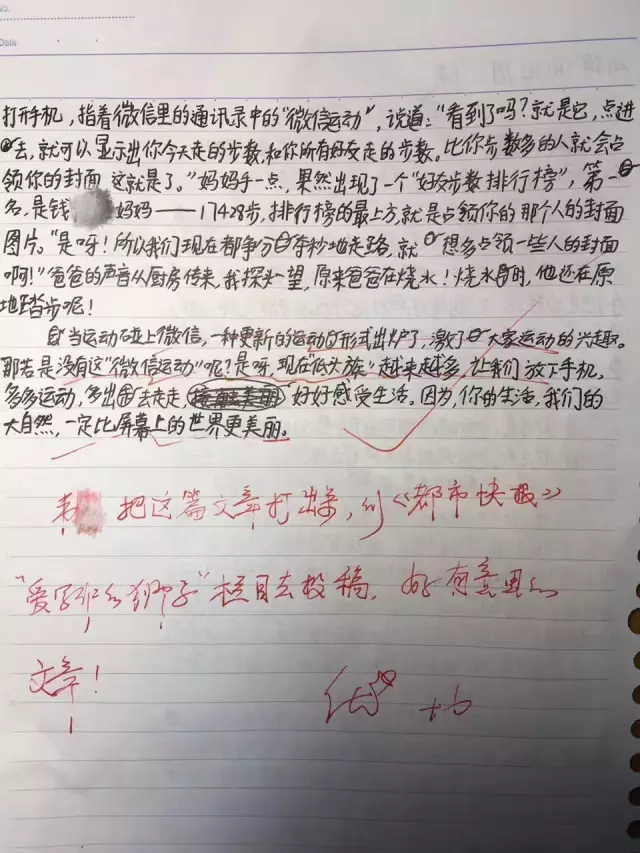 No.
Date
打开手机，指着微信里的通讯录中的“微信运动”，说道：“看到了吗？就是它，点进
去，就可以显示出你今天走的步数，和你所有好友走的步数。比你步数多的人就会占
领你的封面，这就是了。”妈妈手一点，果然出现了一个“好友步数排行榜”，第一
名，是钱妈妈——17428步，排行榜的最上方，就是占领你的那个人的封面
图片。“是呀！所以我们现在都争分夺秒地走路，就想多占领一些人的封面
啊！”爸爸的声音从厨房传来，我探头一望，原来爸爸在烧水！烧水时，他还在原
地踏步呢！
当运动碰上微信，一种更新的运动形式出炉了，激了大家运动的兴趣。
那若是没有这“微信运动”呢？是呀，现在“低头族”越来越多，让我们放下手机，
多多运动，多出去走走，好好感受生活。因为，你的生活，我们的
大自然，一定比屏幕上的世界更美丽。
把这篇文章打出来，到《都市快报》
“爱写作的狮子”栏目去投稿，好有意思的
文章！
优